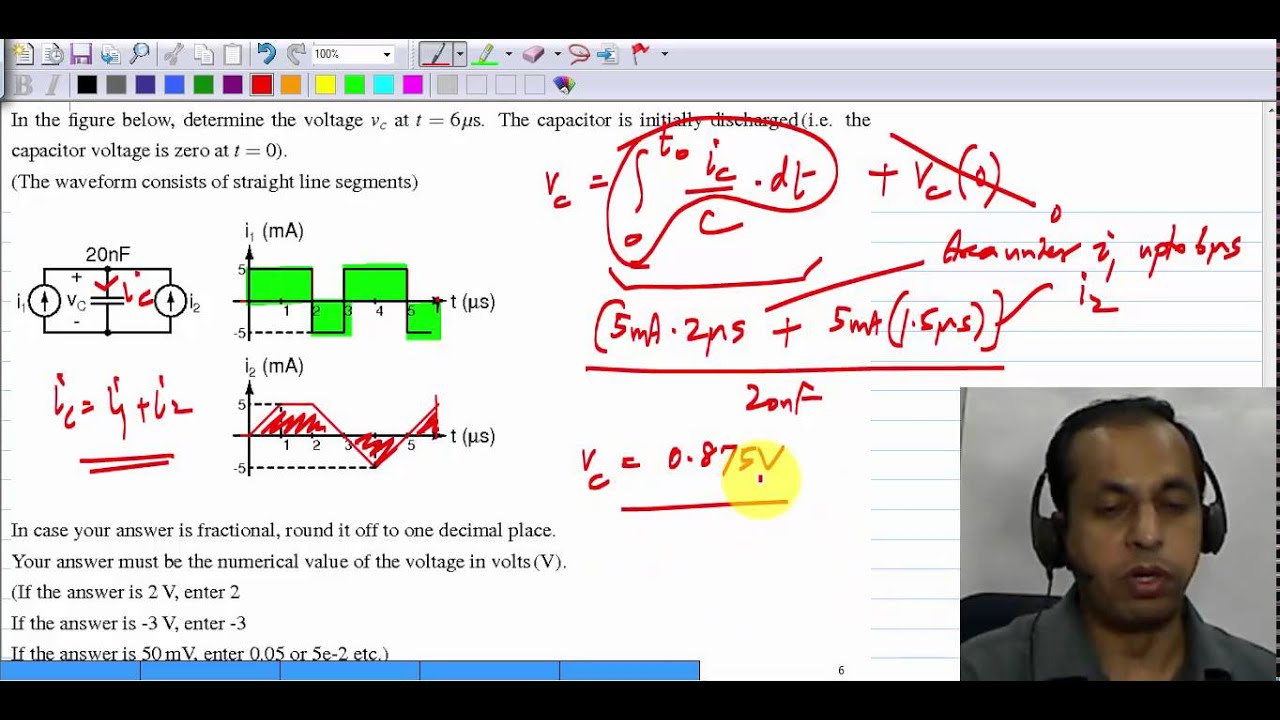 100%
B I
In the figure below, determine the voltage v_c at t = 6μs. The capacitor is initially discharged (i.e. the
capacitor voltage is zero at t = 0).
(The waveform consists of straight line segments)
v_c = ∫_0^{t_0} i_c/C · dt + v_c(0)
0
Area under i_1 upto 6μs
i_2
(5mA · 2μs + 5mA(1.5μs))
20nF
v_c = 0.875V
20nF
i₁ + v_C - i_c i₂
i_c = i_1 + i_2
i₁ (mA)
5
1 2 3 4 5 t (μs)
-5
i₂ (mA)
5
1 2 3 4 5 t (μs)
-5
In case your answer is fractional, round it off to one decimal place.
Your answer must be the numerical value of the voltage in volts (V).
(If the answer is 2 V, enter 2
If the answer is -3 V, enter -3
If the answer is 50 mV, enter 0.05 or 5e-2 etc.)
6